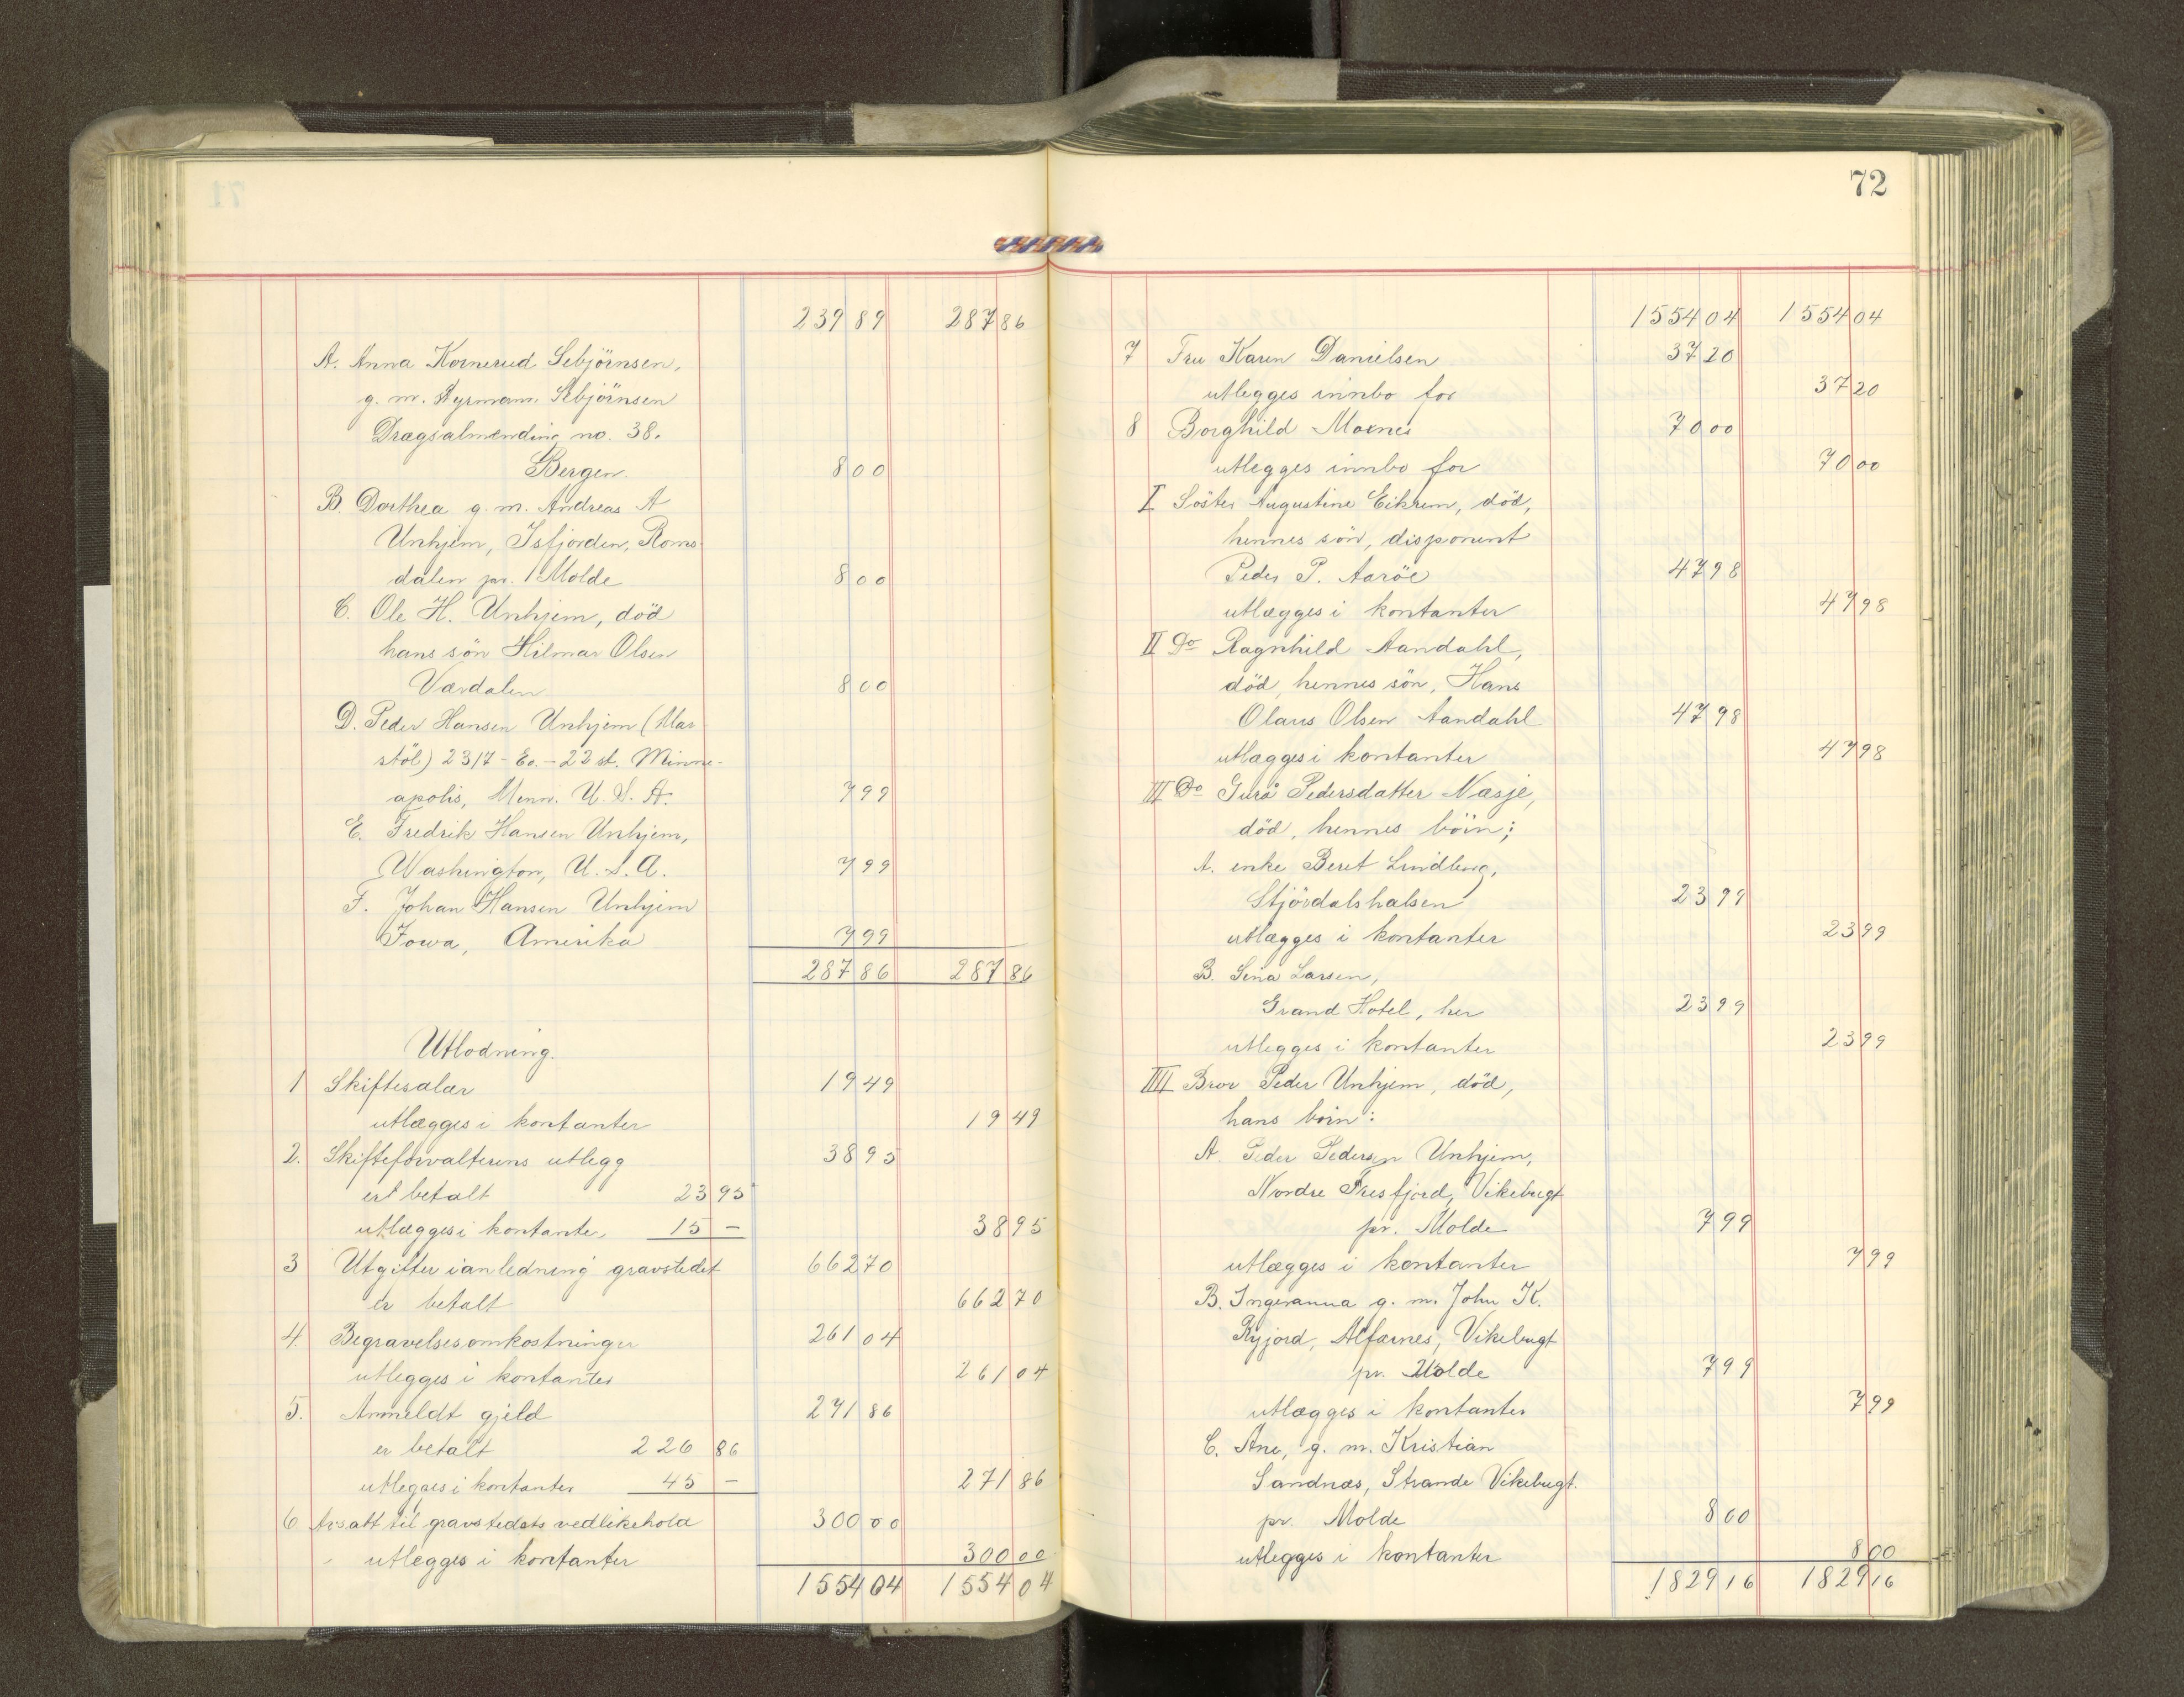 239 89 287 86
A. Anna Kornerud Sebjörnsen,
g. m. Sebjörnsen
Dragsalmending no. 38.
Bergen 8 00
B. Dorthea g. m. Andreas A
Unhjem, Isfjorden, Roms-
dalen pr. Molde 8 00
C. Ole H. Unhjem, död
hans sön Hilmar Olsen
Værdalen 8 00
D. Peder Hansen Unhjem (Mar
stöl) 2317 - Eo. - 22 st. Minne-
apolis, Menn. U. S. A. 7 99
E. Fredrik Hansen Unhjem,
Washington, U. S. A. 7 99
F. Johan Hansen Unhjem
Iowa, Amerika 7 99
287 86 287 86
Utlodning.
1 Skiftesalær 19 49
utlægges i kontanter 19 49
2. Skifteforvalterens utlegg 38 95
er betalt 23 95
utlægges i kontanter 15 - 38 95
3 Utgifter i anledning gravstedet 662 70
er betalt 662 70
4. Begravelsesomkostninger 261 04
utlegges i kontanter 261 04
5. Anmeldt gjeld 271 86
er betalt 226 86
utlegges i kontanter 45 - 271 86
6 Avsatt til gravstedets vedlikehold 300 00
utlegges i kontanter 300 00
1554 04 1554 04
72
1554 04 1554 04
7 Fru Karen Danielsen 37 20
utlegges innbo for 37 20
8 Borghild Moxnes 70 00
utlegges innbo for 70 00
I Söster Augustine Eikrem, död,
hennes sön, disponent
Peder P. Aaröe 47 98
utlægges i kontanter 47 98
II Do Ragnhild Aandahl,
död, hennes sön, Hans
Olaus Olsen Aandahl 47 98
utlægges i kontanter 47 98
III Do Guro Pedersdatter Næsje,
död, hennes börn;
A. enke Beret Lindberg,
Stjördalshalsen 23 99
utlægges i kontanter 23 99
B. Sena Larsen,
Grand Hotel, her 23 99
utlegges i kontanter 23 99
IIII Bror Peder Unhjem, död,
hans börn:
A. Peder Pedersen Unhjem,
Nordre Tresfjord, Vikebugt
pr. Molde 7 99
utlægges i kontanter 7 99
B. Ingeranna g. m. John K.
Ryjord, Alfarnes, Vikebugt
pr. Molde 7 99
utlægges i kontanter 7 99
C. Ane, g. m. Kristian
Sandnæs, Strande Vikebugt.
pr. Molde 8 00
utlegges i kontanter 8 00
1829 16 1829 16